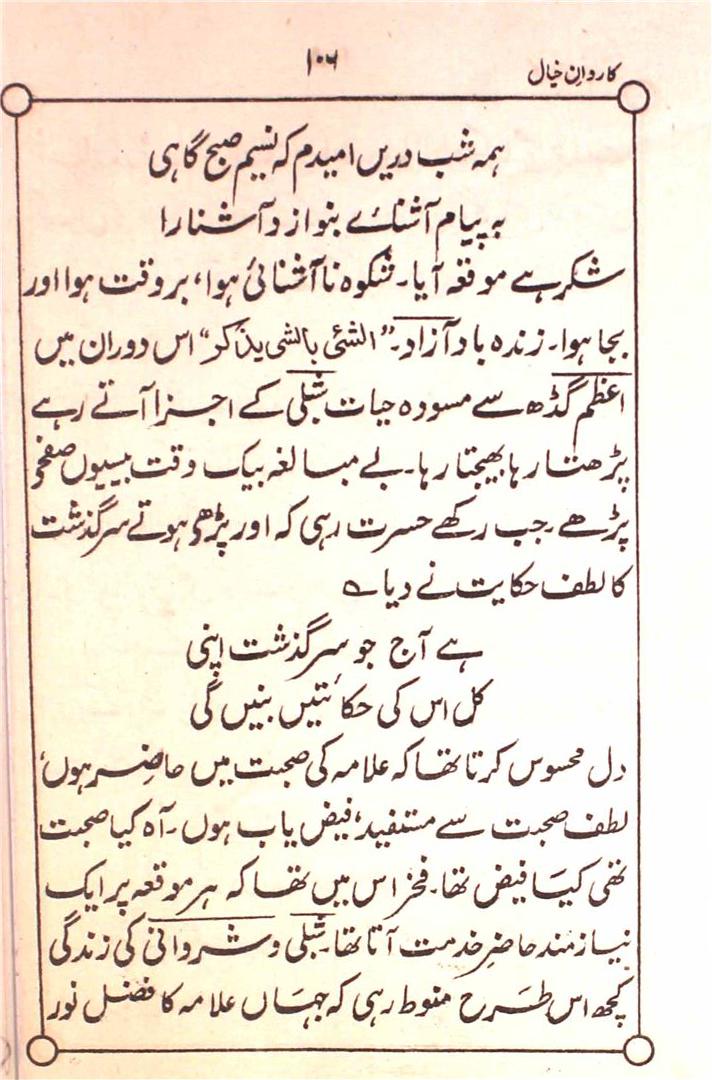 کاروانِ خیال
۱۰۶
ہمہ شب دریں امیدم کہ نسیم صبح گاہی
بہ پیام آشنائے بنوازد آشنا را
شکر ہے موقعہ آیا۔ شکوہ ناآشنائی ہوا، بر وقت ہوا اور
بجا ہوا۔ زندہ باد آزاد۔ "الشئی بالشی یذکر" اس دوران میں
اعظم گڈھ سے مسودہ حیات شبلی کے اجزا آتے رہے
پڑھتا رہا بھیجتا رہا۔ بے مبالغہ بیک وقت بیسیوں صفحو
پڑھے۔ جب رکھے حسرت رہی کہ اور پڑھو ہوتے سرگذشت
کا لطف حکایت نے دیا ؎
ہے آج جو سرگذشت اپنی
کل اس کی حکائتیں بنیں گی
دل محسوس کرتا تھا کہ علامہ کی صحبت میں حاضر ہوں،
لطف صحبت سے مستفید، فیض یاب ہوں۔ آہ کیا صحبت
تھی کیسا فیض تھا۔ فخر اس میں تھا کہ ہر موقعہ پر ایک
نیاز مند حاضرِ خدمت آتا تھا۔ شبلی و شروانی کی زندگی
کچھ اس طرح منوط رہی کہ جہاں علامہ کا فضل نور